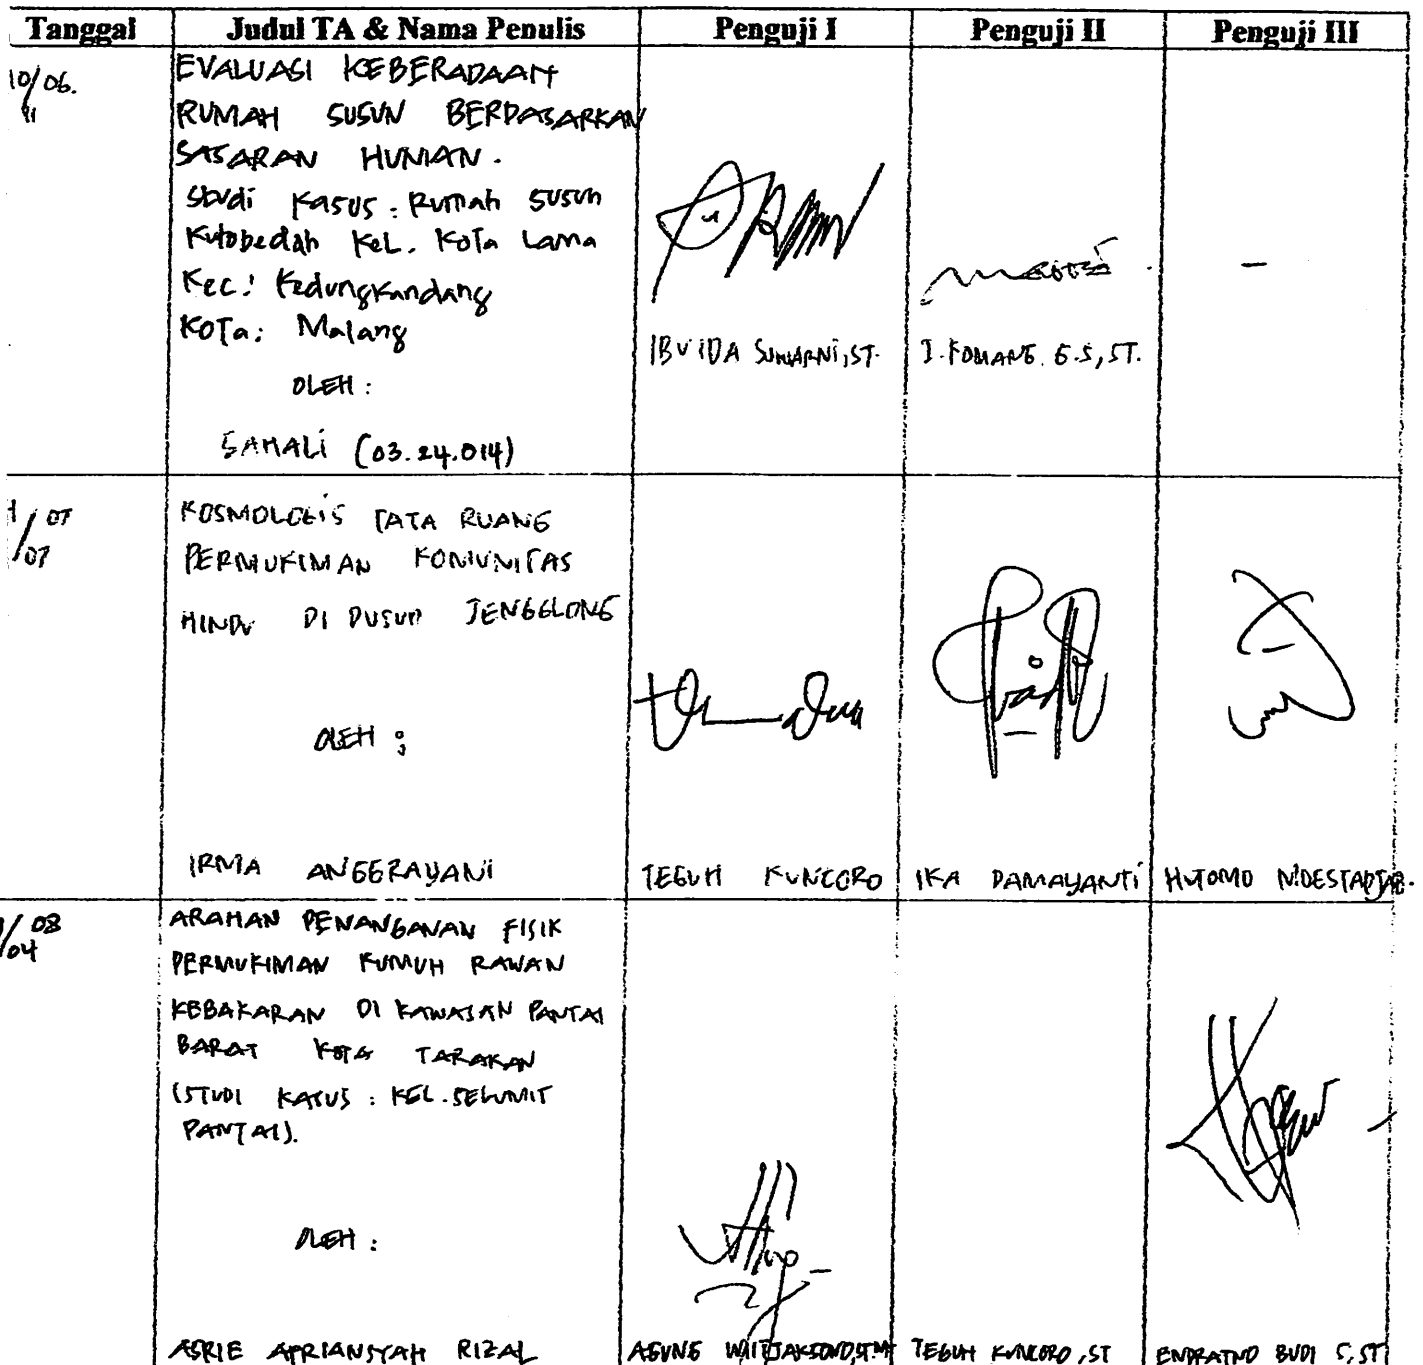 Tanggal Judul TA & Nama Penulis Penguji I Penguji II Penguji III
10/06.
11
EVALUASI KEBERADAAN
RUMAH SUSUN BERDASARKAN
SASARAN HUNIAN.
Studi Kasus : Rumah Susun
Kutobedah Kel. Kota Lama
Kec: Kedungkandang
Kota: Malang
OLEH :
SAHALI (03.24.014)
IBU IDA SUWARNI, ST.
I. KOMANG. G.S, ST.
-
07
/07
KOSMOLOGIS TATA RUANG
PERMUKIMAN KOMUNITAS
HINDU DI DUSUN JENGGLONG
OLEH :
IRMA ANGGERAYANI
TEGUH KUNCORO
IKA DAMAYANTI
HUTOMO
/08
04
ARAHAN PENANGANAN FISIK
PERMUKIMAN KUMUH RAWAN
KEBAKARAN DI KAWASAN PANTAI
BARAT KOTA TARAKAN
(STUDI KASUS : KEL. SELUMIT
PANTAI).
OLEH :
ASRIE APRIANSYAH RIZAL
AGUNG WITJAKSONO, ST.MT
TEGUH KUNCORO, ST
ENDRATNO BUDI S, ST